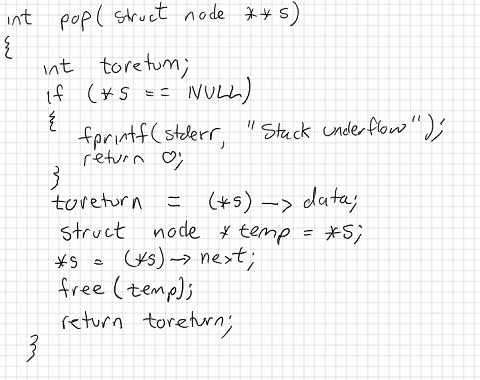 int pop( struct node **s)
{
int toreturn;
if (*s == NULL)
{
fprintf(stderr, "Stack underflow");
return 0;
}
toreturn = (*s) -> data;
struct node *temp = *s;
*s = (*s) -> next;
free(temp);
return toreturn;
}